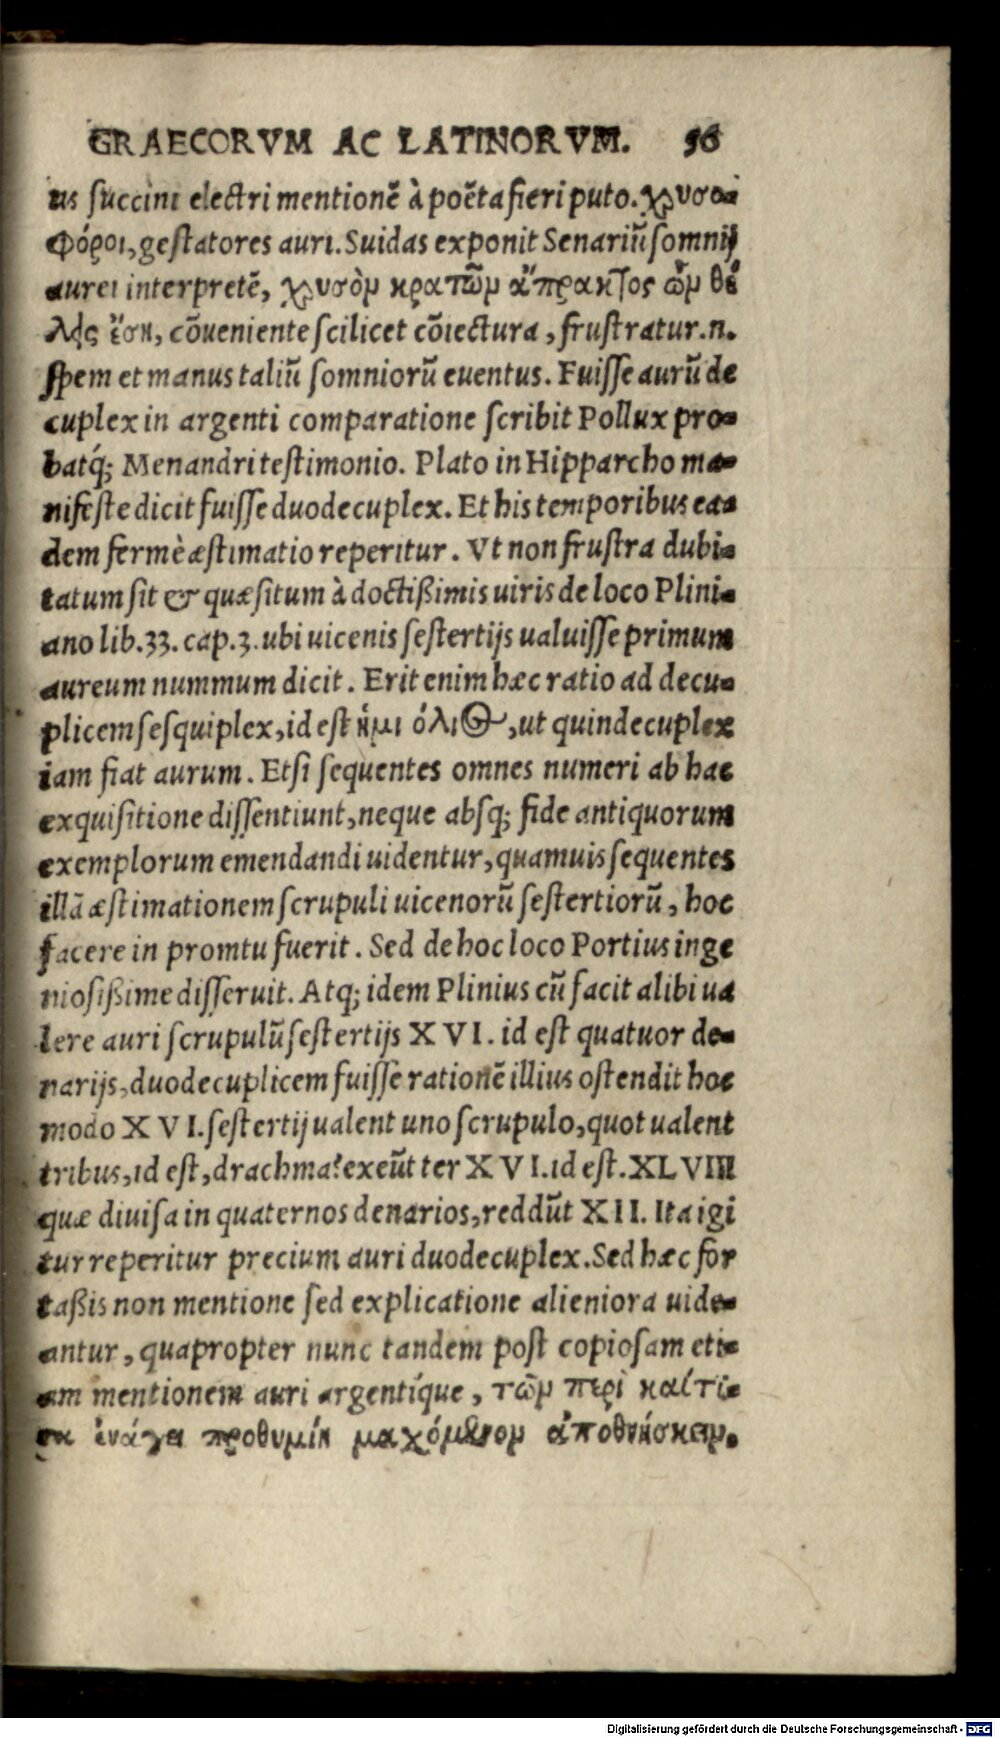 GRAECORVM AC LATINORVM. 56
us succini electri mentionẽ à poëta fieri puto. χρυσο-
φόροι, gestatores auri. Suidas exponit Senariũ somnij
aurei interpretẽ, χρυσὸν κρατῶν ἄπρακτος ὢν θέ
λῃς ἴσθι, cõueniente scilicet cõiectura, frustratur.n.
spem et manus taliũ somniorũ euentus. Fuisse aurũ de
cuplex in argenti comparatione scribit Pollux pro-
batq́; Menandri testimonio. Plato in Hipparcho ma-
nifeste dicit fuisse duodecuplex. Et his temporibus ea-
dem fermè æstimatio reperitur. Vt non frustra dubi-
tatum sit & quæsitum à doctißimis uiris de loco Plini-
ano lib.33. cap.3. ubi uicenis sestertijs ualuisse primum
aureum nummum dicit. Erit enim hæc ratio ad decu-
plicem sesquiplex, id est ἡμιόλιος, ut quindecuplex
iam fiat aurum. Etsi sequentes omnes numeri ab hac
exquisitione dissentiunt, neque absq; fide antiquorum
exemplorum emendandi uidentur, quamuis sequentes
illã æstimationem scrupuli uicenorũ sestertiorũ, hoc
facere in promtu fuerit. Sed de hoc loco Portius inge
niosißime disseruit. Atq; idem Plinius cũ facit alibi ua
lere auri scrupulũ sestertijs XVI. id est quatuor de-
narijs, duodecuplicem fuisse rationẽ illius ostendit hoc
modo XVI. sestertij ualent uno scrupulo, quot ualent
tribus, id est, drachma? exeũt ter XVI. id est. XLVIII
quæ diuisa in quaternos denarios, reddũt XII. Ita igi
tur reperitur precium auri duodecuplex. Sed hæc for
taßis non mentione sed explicatione alieniora uide-
antur, quapropter nunc tandem post copiosam eti-
am mentionem auri argentíque, τῶν περὶ
προθυμίη μαχόμενον ἀποθνήσκειν.
Digitalisierung gefördert durch die Deutsche Forschungsgemeinschaft - DFG